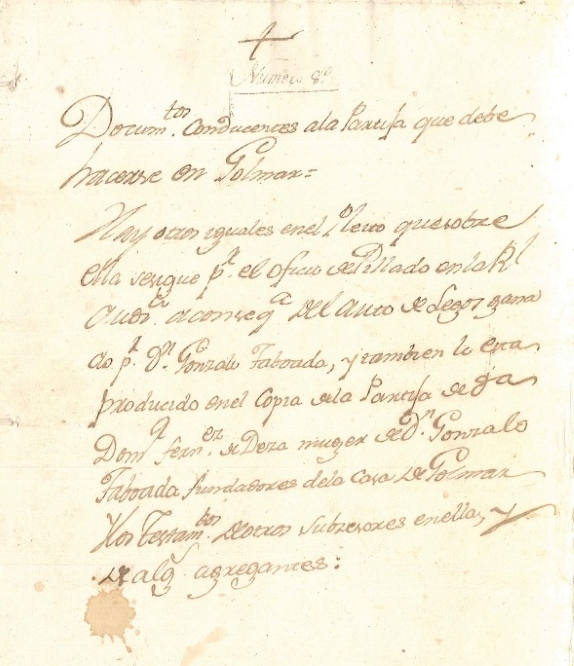 Numero 8º
Docum.tos conducentes ala Partija que debe
hacerse en Golmar=
Hay otros iguales enel Pleito que sobre
ella sesigue p.r el oficio de Pillado enla Rl
Aud.a aconseq.a del Auto de Legos gana
do p.r D.n Gonzalo Taboada, y tambien lo esta
producido enel Copia dela Partija de
Dom.a Fern.ez de Deza muger de D.n Gonzalo
Taboada fundadores dela Casa de Golmar
Testam.tos de otros subcesores enella, y
de alg.s agregantes: